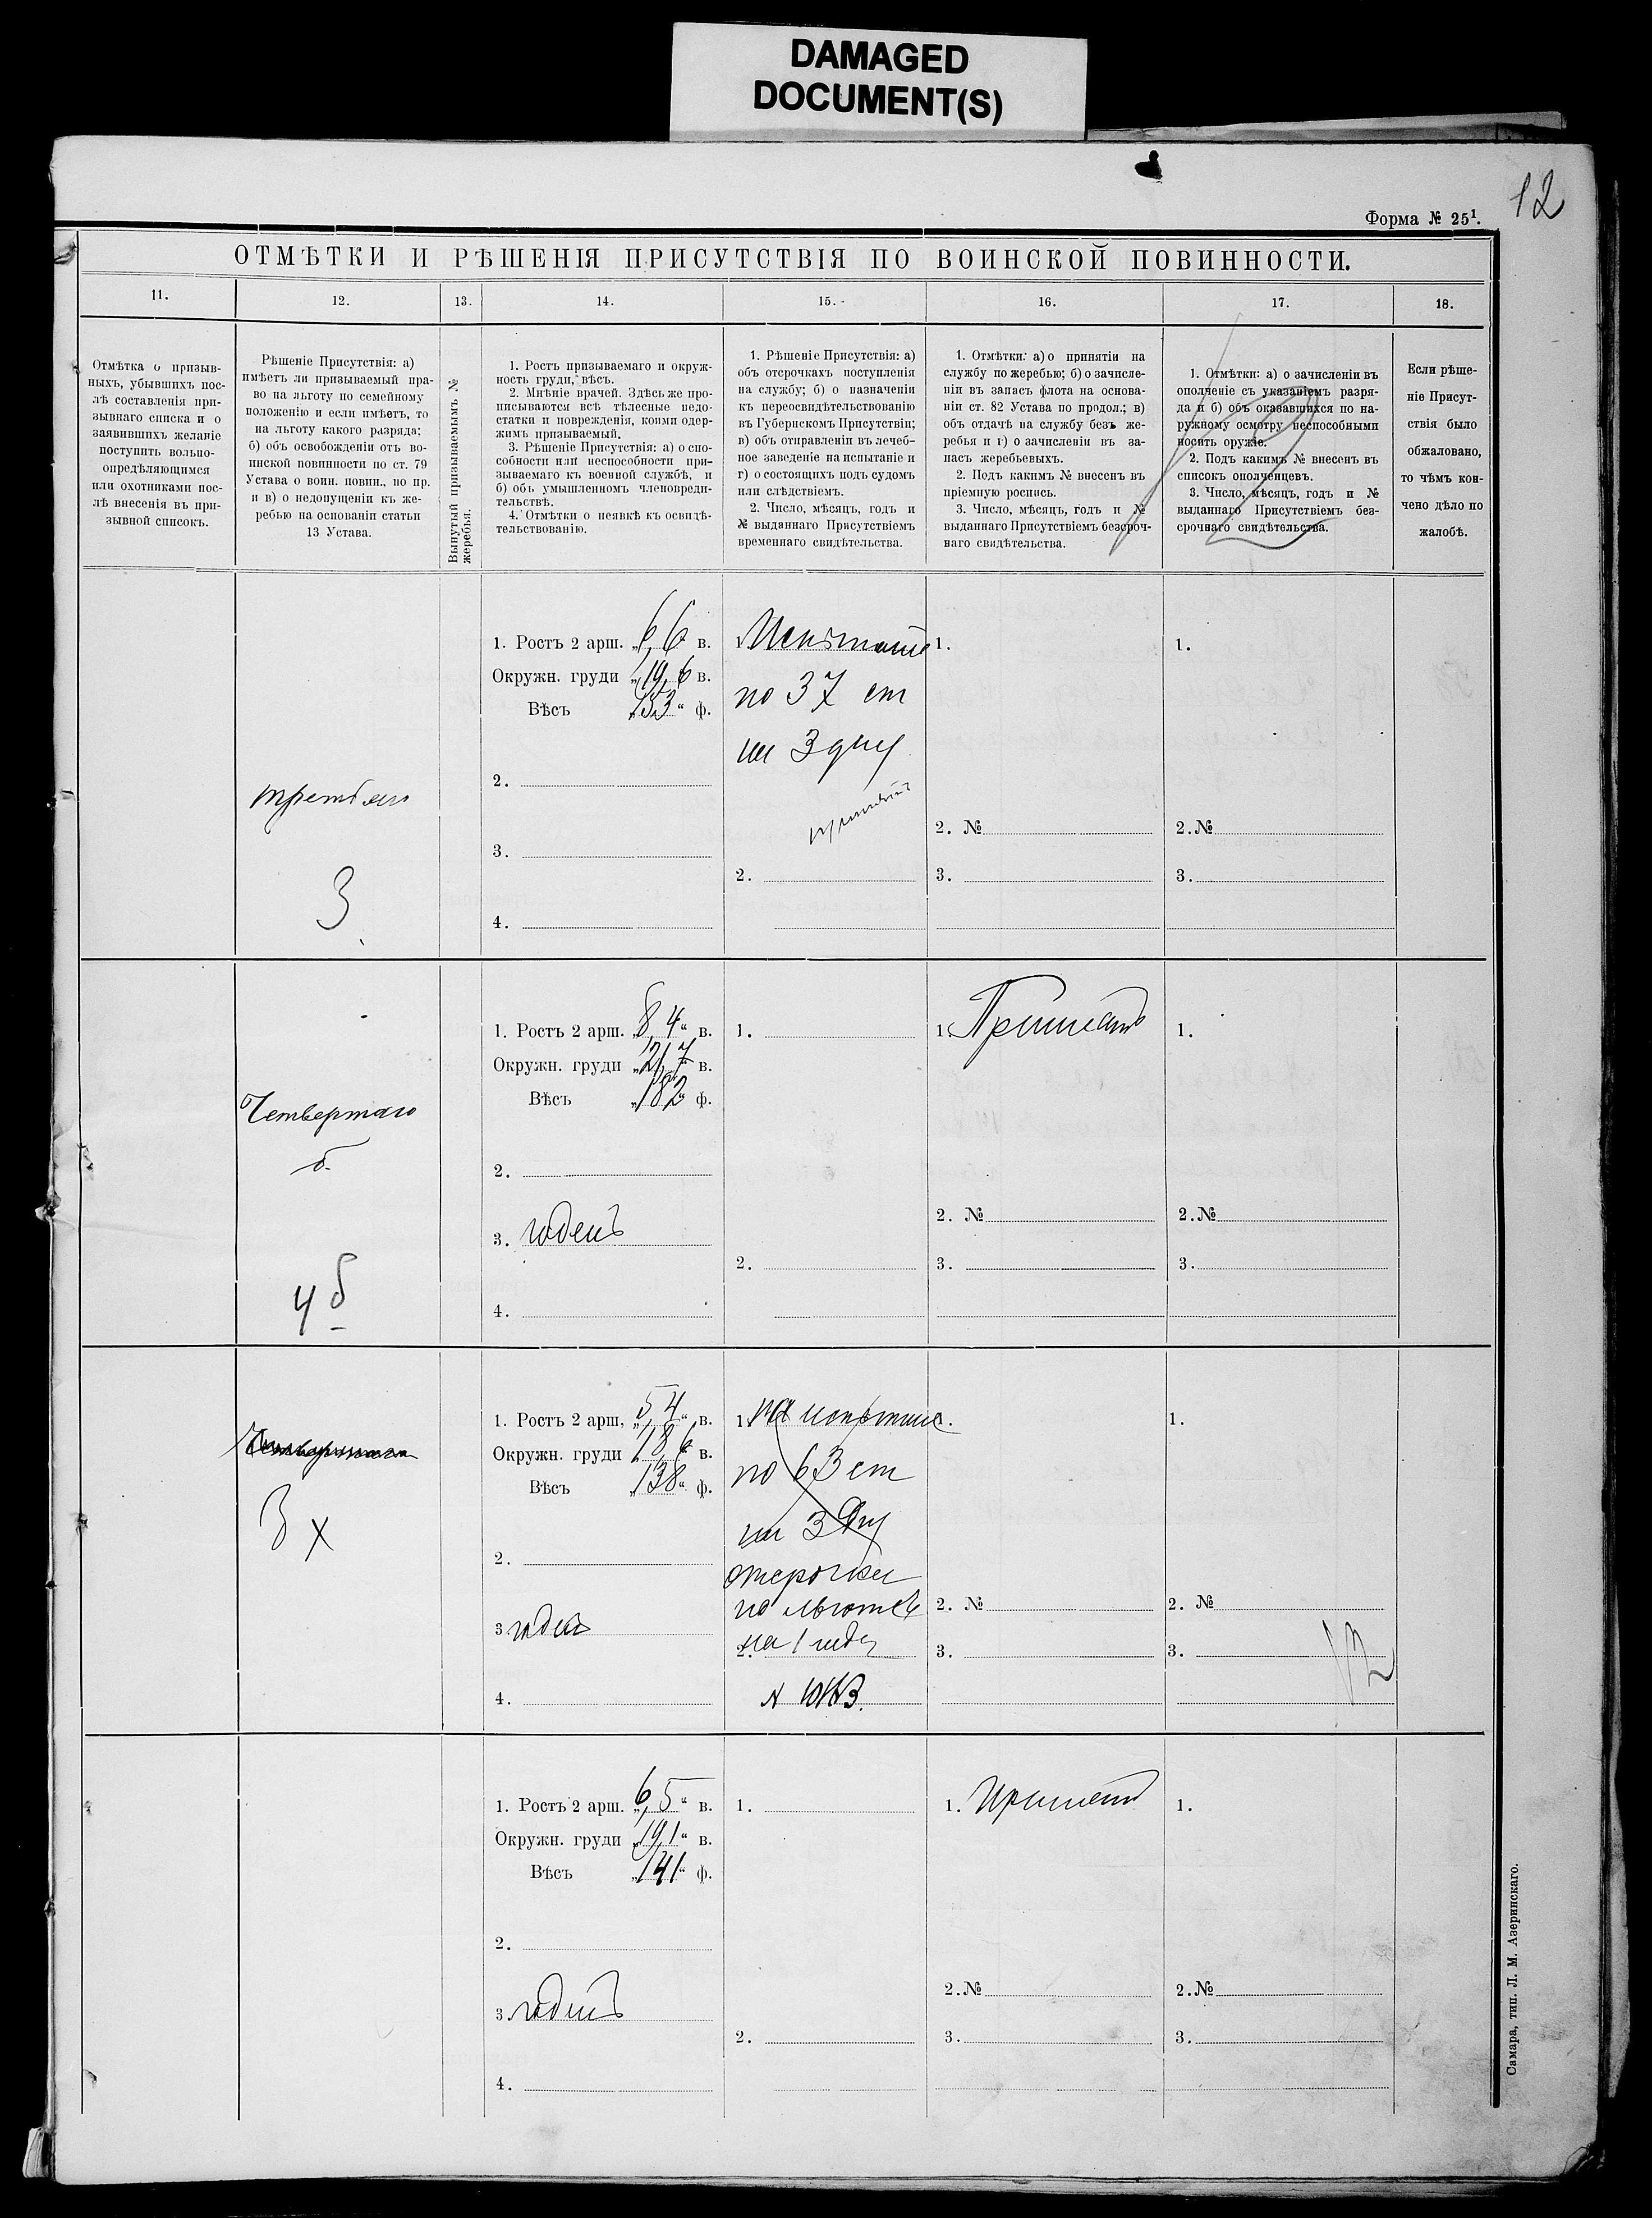 DAMAGED
DOCUMENT(S)
12
Форма № 25¹.
ОТМѢТКИ И РѢШЕНІЯ ПРИСУТСТВІЯ ПО ВОИНСКОЙ ПОВИННОСТИ.
11.
12.
13.
14.
15.
16.
17.
18.
Отмѣтка о призыв-
ныхъ, убывшихъ пос-
лѣ составленія при-
зывнаго списка и о
заявившихъ желаніе
поступить вольно-
опредѣляющимся
или охотниками пос-
лѣ внесенія въ при-
зывной списокъ.
Рѣшеніе Присутствія: а)
имѣетъ ли призываемый пра-
во на льготу по семейному
положенію и если имѣетъ, то
на льготу какого разряда;
б) объ освобожденіи отъ во-
инской повинности по ст. 79
Устава о воин. повин., по пр.
и в) о недопущеніи къ же-
ребью на основаніи статьи
13 Устава.
Вынутый призываемымъ №
жеребья.
1. Ростъ призываемаго и окруж-
ность груди, вѣсъ.
2. Мнѣніе врачей. Здѣсь же про-
писываются всѣ тѣлесные недо-
статки и поврежденія, коими одер-
жимъ призываемый.
3. Рѣшеніе Присутствія: а) о спо-
собности или неспособности при-
зываемаго къ военной службѣ, и
б) объ умышленномъ членовреди-
тельствѣ.
4. Отмѣтки о неявкѣ къ освидѣ-
тельствованію.
1. Рѣшеніе Присутствія: а)
объ отсрочкахъ поступленія
на службу; б) о назначеніи
къ переосвидѣтельствованію
въ Губернскомъ Присутствіи;
в) объ отправленіи въ лечеб-
ное заведеніе на испытаніе и
г) о состоящихъ подъ судомъ
или слѣдствіемъ.
2. Число, мѣсяцъ, годъ и
№ выданнаго Присутствіемъ
временнаго свидѣтельства.
1. Отмѣтки: а) о принятіи на
службу по жеребью; б) о зачисле-
ніи въ запасъ флота на основа-
ніи ст. 82 Устава по продол.; в)
объ отдачѣ на службу безъ же-
ребья и г) о зачисленіи въ за-
пасъ жеребьевыхъ.
2. Подъ какимъ № внесенъ въ
пріемную роспись.
3. Число, мѣсяцъ, годъ и №
выданнаго Присутствіемъ безсроч-
наго свидѣтельства.
1. Отмѣтки: а) о зачисленіи въ
ополченіе съ указаніемъ разря-
да и б) объ оказавшихся по на-
ружному осмотру неспособными
носить оружіе.
2. Подъ какимъ № внесенъ въ
списокъ ополченцевъ.
3. Число, мѣсяцъ, годъ и №
выданнаго Присутствіемъ без-
срочнаго свидѣтельства.
Если рѣше-
ніе Присут-
ствія было
обжаловано,
то чѣмъ кон-
чено дѣло по
жалобѣ.
12
третьяго
3
1. Ростъ 2 арш. „6,6 в.
Окружн. груди „19,6 в.
Вѣсъ „153“ ф.
2.
3.
4.
1.
по 37 ст
на 3
2.
1.
2. №
3.
1.
2. №
3.
Четвертаго
б.
4 б
1. Ростъ 2 арш. „8,4“ в.
Окружн. груди „21,7“ в.
Вѣсъ „182 ф.
2.
3. годенъ
4.
1.
2.
1. Принятъ
2. №
3.
1.
2. №
3.
Четвертаго
3 х
1. Ростъ 2 арш. „5,4“ в.
Окружн. груди 18,6 в.
Вѣсъ „138“ ф.
2.
3 годенъ
4.
1. на
по 63 ст
на 3
отсрочка
по льготе
2. на 1 годъ
№
1.
2. №
3.
1.
2. №
3.
12
1. Ростъ 2 арш. „6,5“ в.
Окружн. груди „19,1“ в.
Вѣсъ „141“ ф.
2.
3. годенъ
4.
1.
2.
1. Принятъ
2. №
3.
1.
2. №
3.
Самара, тип. Л. М. Азеринскаго.